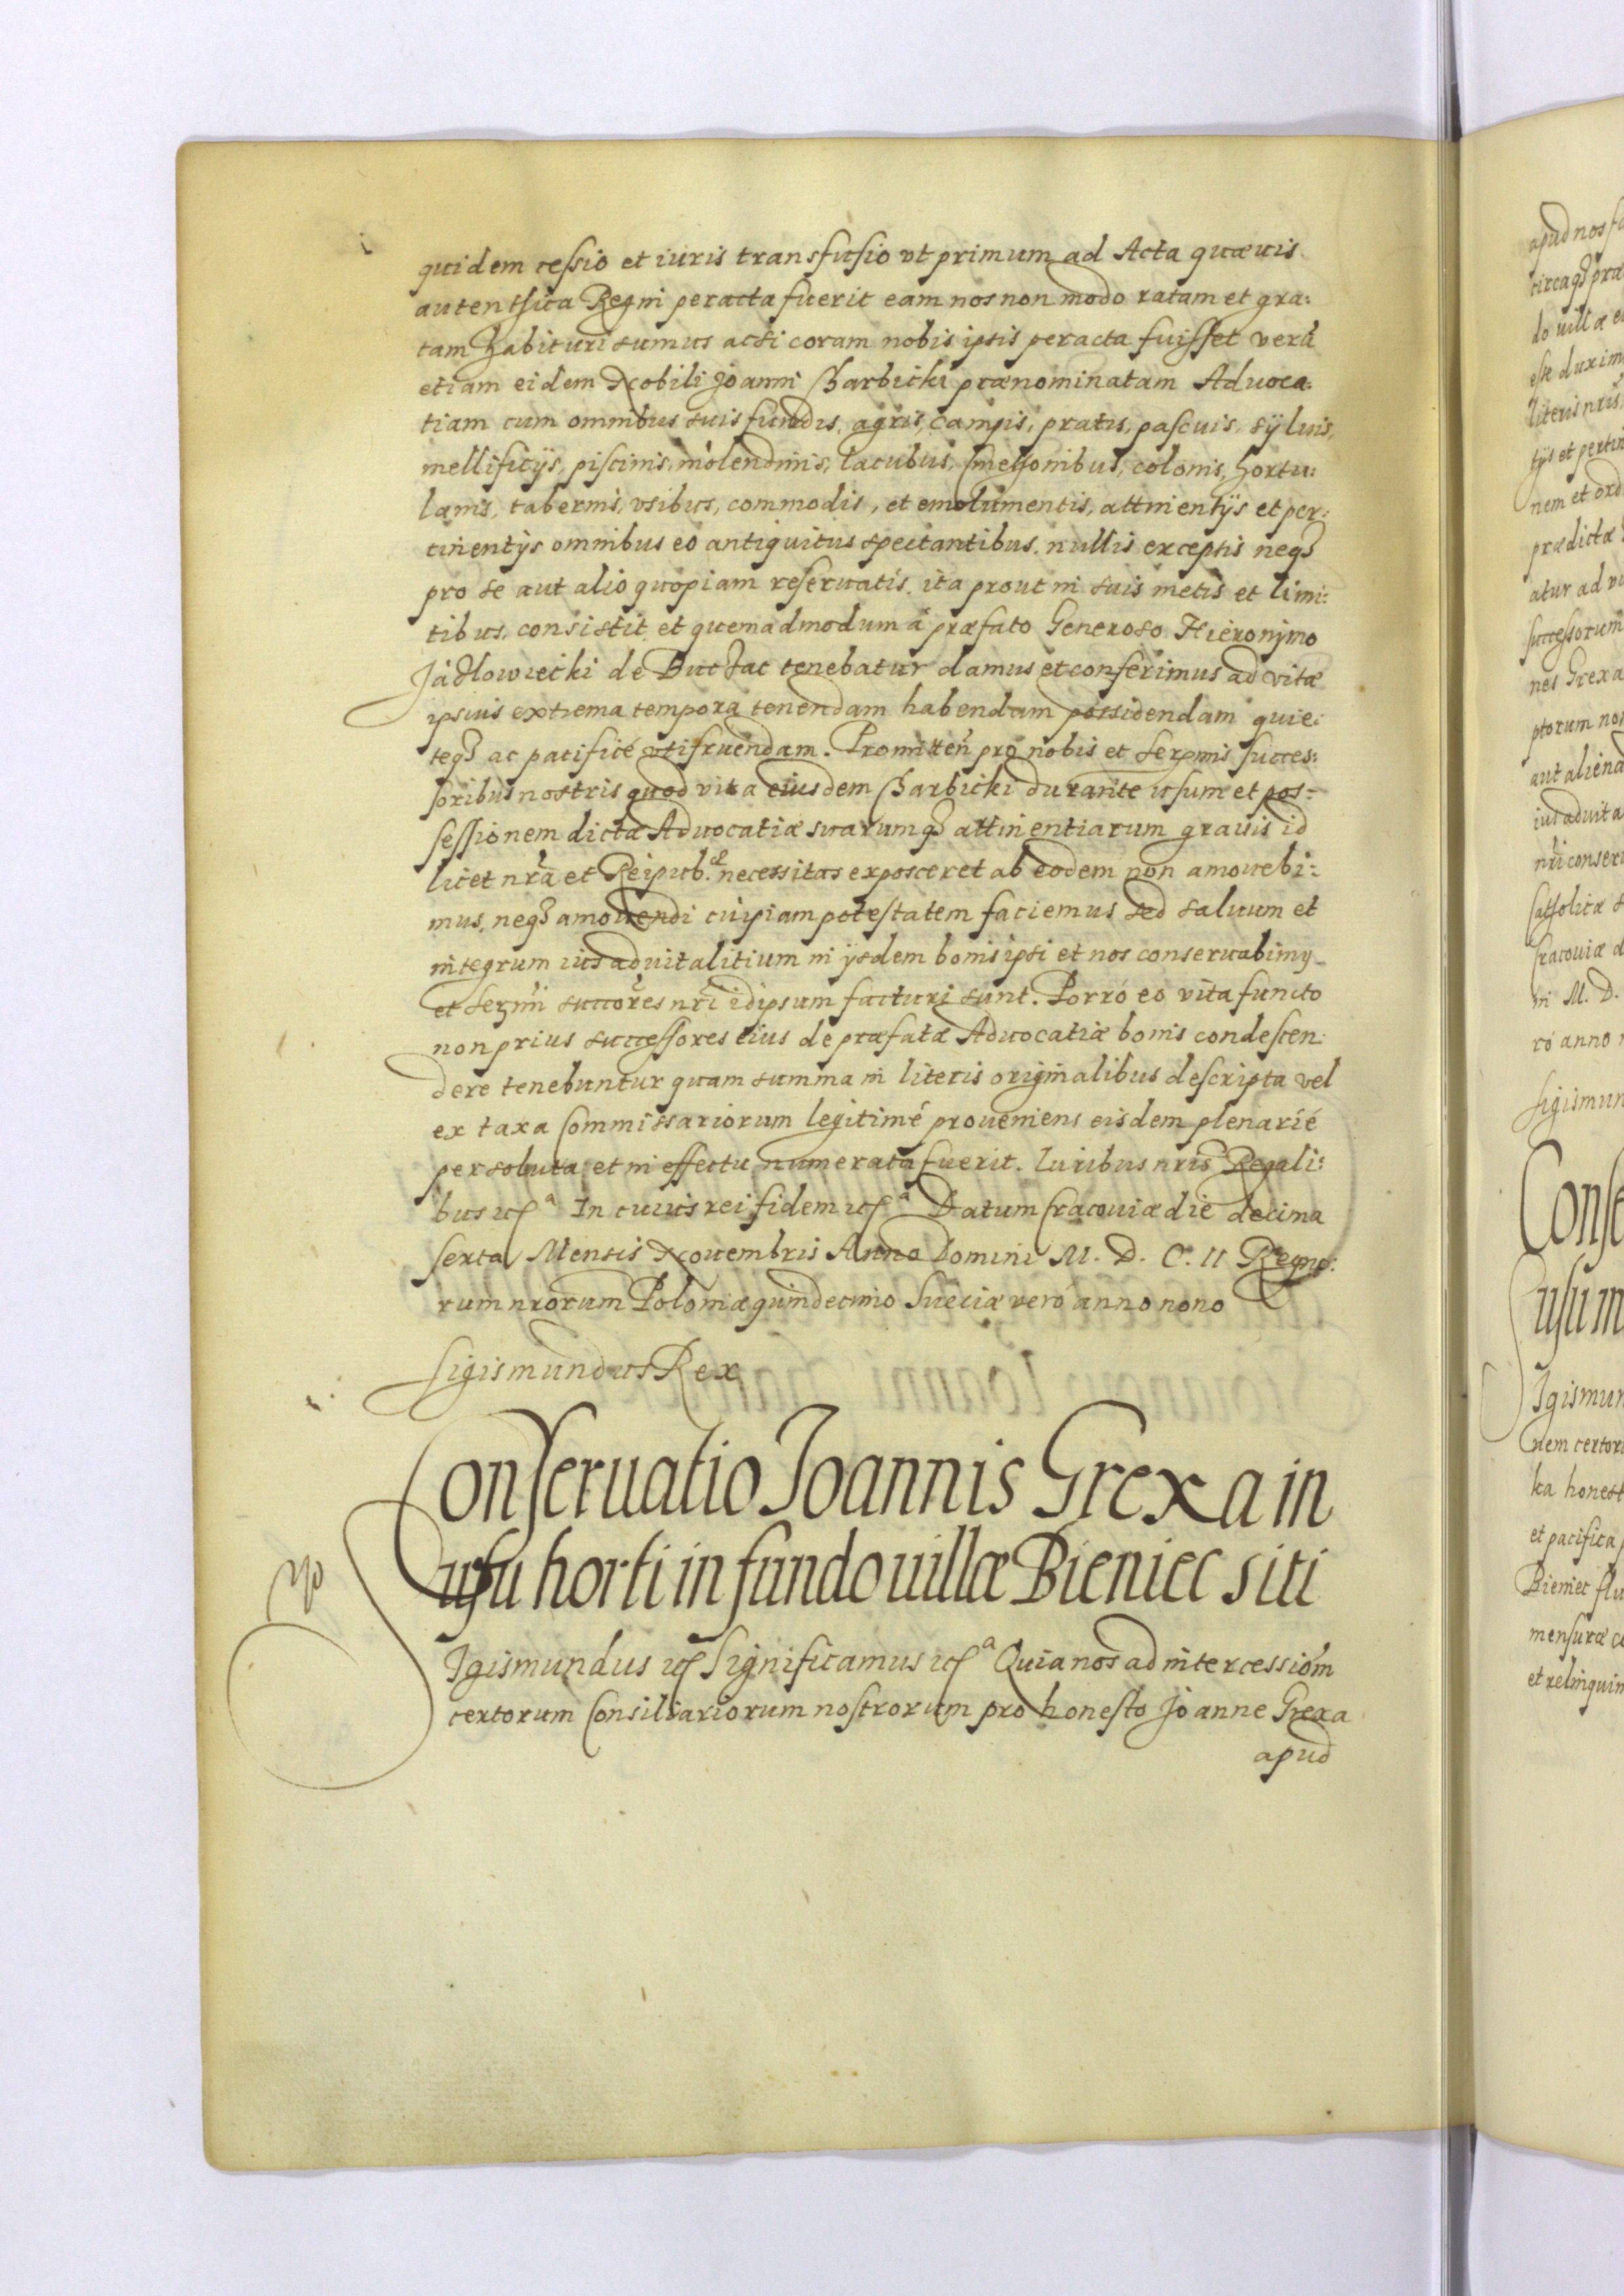 quidem cessio et iuris transfusio vt primum ad Acta quæuis
autenthica Regni peracta fuerit eam nos non modo ratam et gra:
tam habituri sumus ac si coram nobis ipsis peracta fuisset verũ
etiam eidem Nobili Joanni Charbicki prænominatam Aduoca:
tiam cum omnibus suis fundis, agris, campis, pratis, pascuis, syluis,
mellificijs, piscinis, molendinis, lacubus, kmetonibus, colonis, hortu:
lanis, tabernis, vsibus, commodis, et emolumentis, attinentijs et per:
tinentijs omnibus eo antiquitus spectantibus, nullis exceptis neqȝ
pro se aut alio quopiam reseruatis, ita prout in suis metis et limi:
tibus, consistit et quemadmodum á præfato Generoso Hieronymo
Jázlowiecki de Buczac tenebatur damus et conferimus ad vitæ
ipsius extrema tempora tenendam habendam possidendam quie:
teqȝ ac pacificé vtifruendam. Promitteñ pro nobis et serenmis succes:
soribus nostris quod vita eiusdem Charbicki durante vsum et pos:
sessionem dictæ Aduocatiæ suarumqȝ attinentiarum grauis id
licet nr̃a et Reipub.cæ necessitas exposceret ab eodem non amouebi:
mus, neqȝ amouendi cuipiam potestatem faciemus sed saluum et
integrum ius aduitalitium in ijsdem bonis ipsi et nos conseruabimq
et serm̃i succores nr̃i id ipsum facturi sunt. Porró eo vita functo
non prius successores eius de præfatæ Aduocatiæ bonis condescen:
dere tenebuntur quam summa in literis originalibus descripta vel
ex taxa Commissariorum legitimé proueniens eisdem plenarié
persoluta et in effectu numerata fuerit. Iuribus nr̃is Regali:
bus etc.a In cuius rei fidem etc.a Datum Cracouiæ die decima
sexta Mensis Nouembris Anno Domini M. D. C. II Regno:
rum nrorum Poloniæ quindecimo Sueciæ veró anno nono
Sigismundus Rex
Conseruatio Joannis Grexa in
usu horti in fundo uillæ Bieniec siti
Sigismundus etc Significamus etc.a Quia nos ad intercessioñm
certorum Consiliariorum nostrorum pro honesto Joanne Grexa
apud